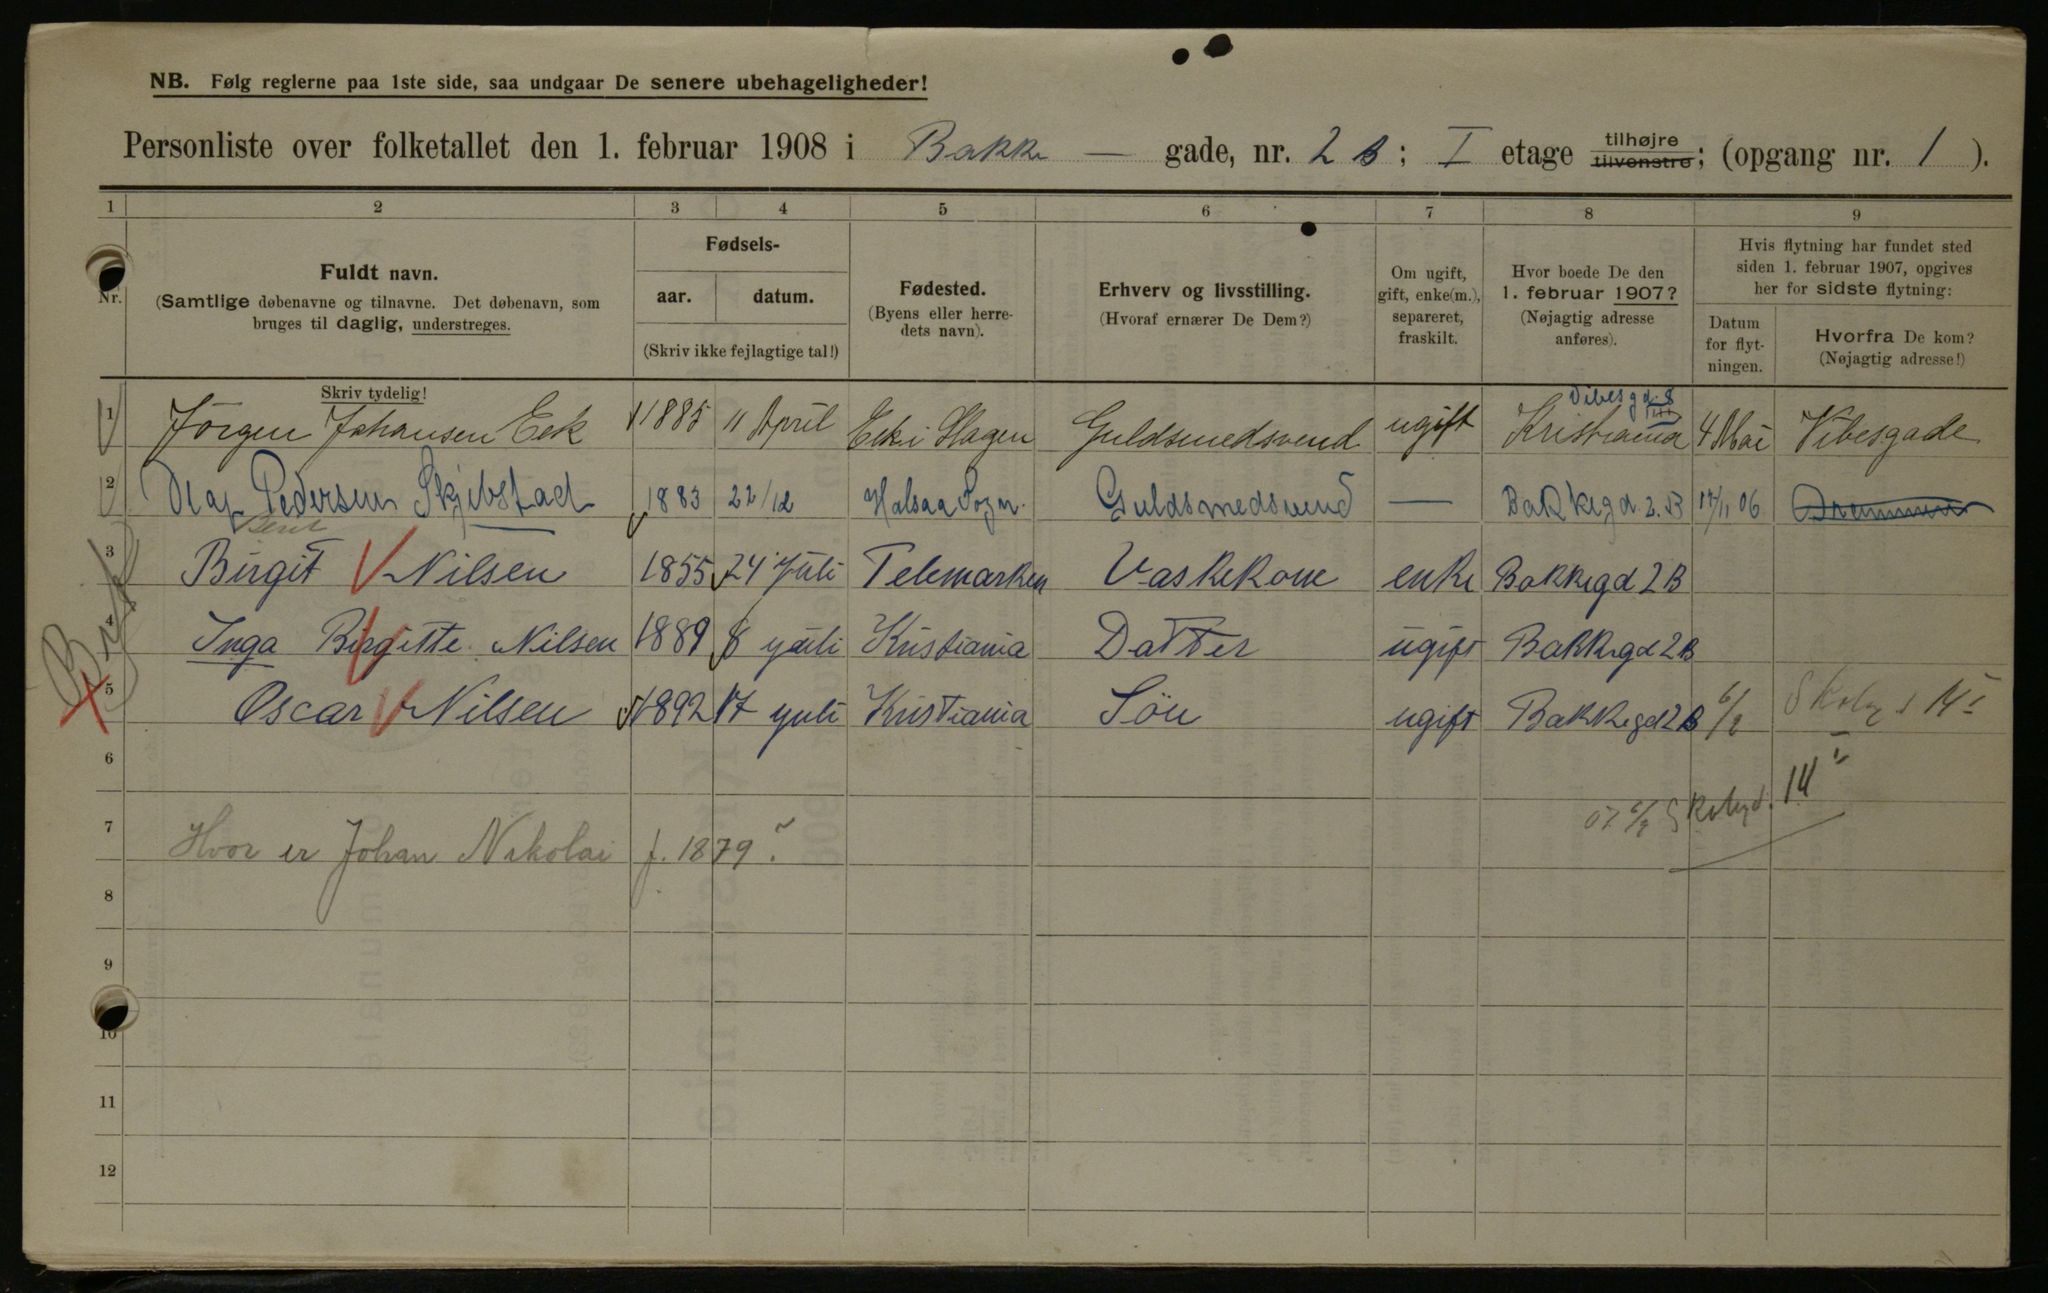 NB. Følg reglerne paa 1ste side, saa undgaar De senere ubehageligheder!
Personliste over folketallet den 1. februar 1908 i Bakke — gade, nr. 2 B; I etage tilhøjre tilvenstre; (opgang nr. 1).
1 2 3 4 5 6 7 8 9
Nr.
Fuldt navn.
(Samtlige døbenavne og tilnavne. Det døbenavn, som
bruges til daglig, understreges.
Skriv tydelig!
Fødsels-
aar. datum.
(Skriv ikke fejlagtige tal!)
Fødested.
(Byens eller herre-
dets navn).
Erhverv og livsstilling.
(Hvoraf ernærer De Dem?)
Om ugift,
gift, enke(m.),
separeret,
fraskilt.
Hvor boede De den
1. februar 1907?
(Nøjagtig adresse
anføres).
Hvis flytning har fundet sted
siden 1. februar 1907, opgives
her for sidste flytning:
Datum
for flyt-
ningen.
Hvorfra De kom?
(Nøjagtig adresse!)
Vibesgd. 8 III
1 Jørgen Johansen Eek 1885 11 April Eek i Hagen Guldsmedsvend ugift Kristiania 4 Mai Vibesgade
2 Olaf Pedersen Skjibstad 1883 22/12 Halsaa Sogn. Guldsmedsvend — Bakkegd. 2. B 17/11 06 Drammen
Bent
3 Birgit Nilsen 1855 24 Juli Telemarken Vaskekone enke Bakkegd 2 B
4 Inga Birgitte Nilsen 1889 8 yuli Kristiania Datter ugift Bakkegd 2 B
5 Oscar Nilsen 1892 17 yuli Kristiania Sön ugift Bakkegd 2 B
6
14
7 Hvor er Johan Nikolai f. 1879?
8
9
10
11
12